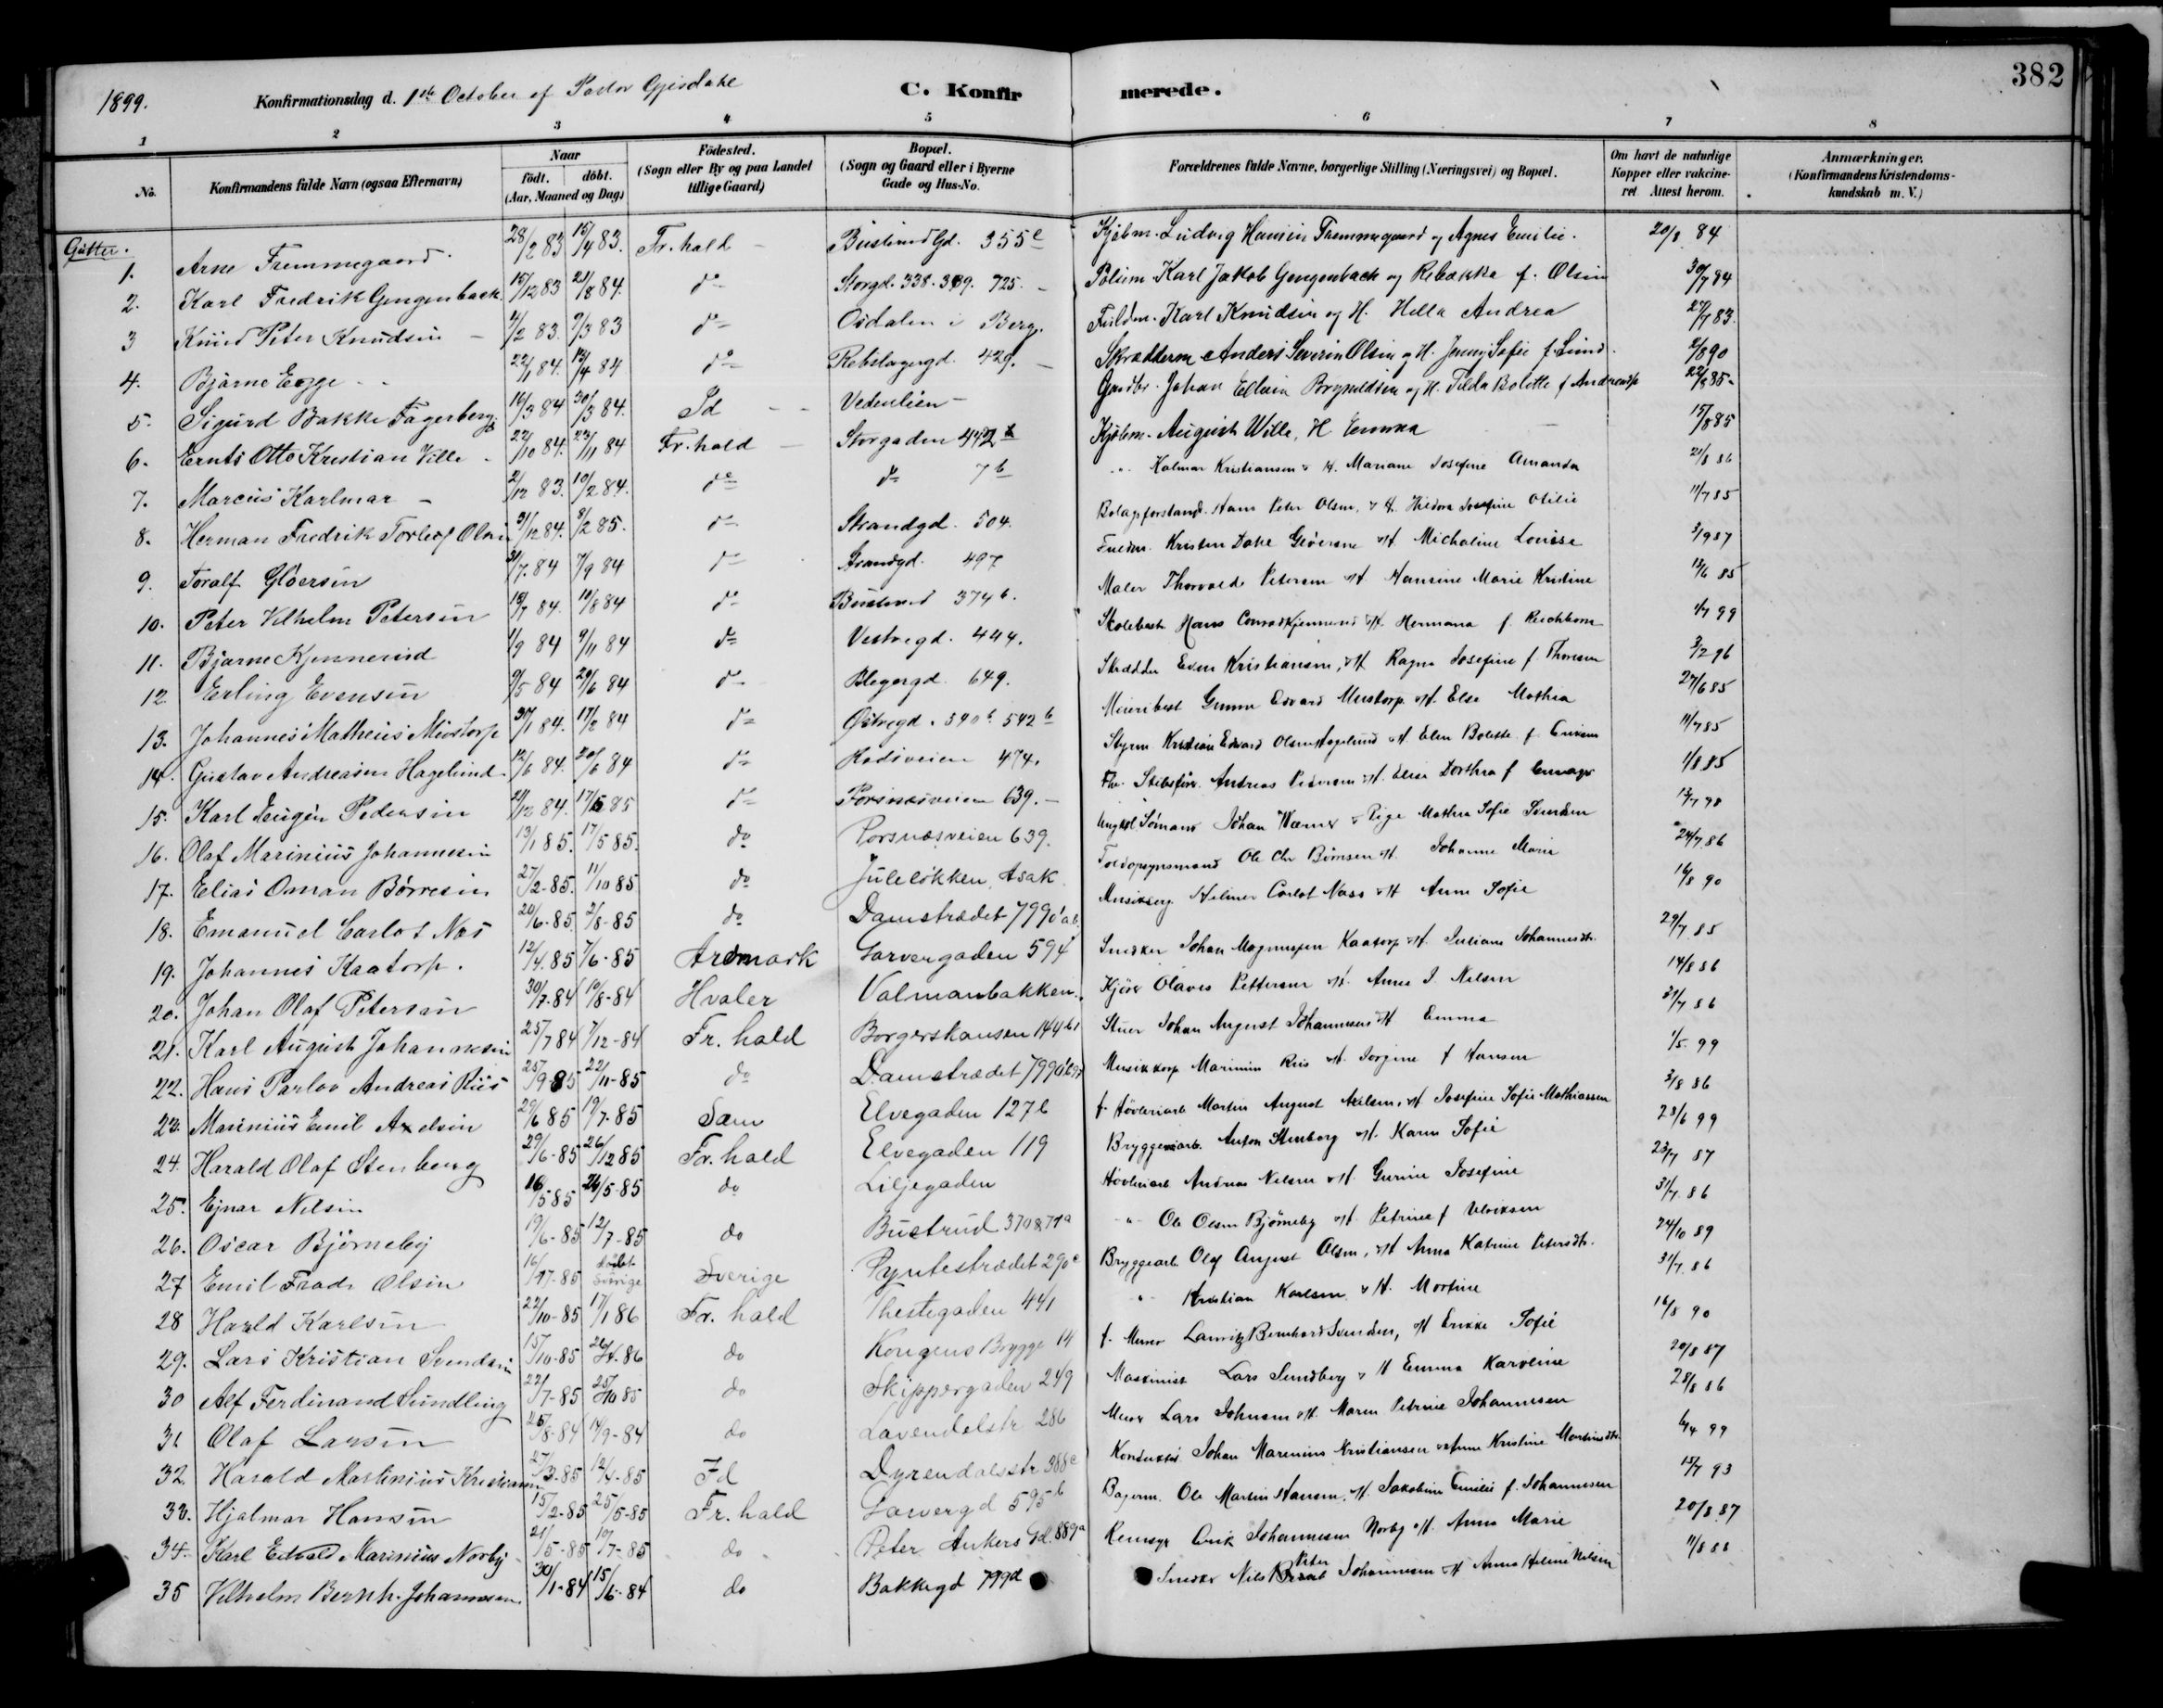 382
1899. Konfirmationsdag d. 1ste October af Pastor Gjisdahl C. Konfirmerede.
1 2 3 4 5 6 7 8
No. Konfirmandens fulde Navn (ogsaa Efternavn) Naar födt. döbt. (Aar, Maaned og Dag) Födested. (Sogn eller By og paa Landet tillige Gaard) Bopæl. (Sogn og Gaard eller i Byerne Gade og Hus-No. Forældrenes fulde Navne, borgerlige Stilling (Næringsvei) og Bopæl. Om havt de naturlige Kopper eller vakcineret Attest herom. Anmærkninger. (Konfirmandens Kristendomskundskab m. V.)
Gutter.
1. Arne Fremmegaard. 28/2 83 15/4 83. Fr.hald Bustrud Gd. 355 e Kjøbm. Ludvig Hansin Fremmegaard og Agnes Emilie. 20/8 84
2. Karl Fredrik Gengenbach 15/12 83 21/8 84. do Storgd. 338. 339. 725. Karl Jakob Gengenbach og Rebekka f. Olsin 30/7 94
3 Knud Peter Knudsin 4/2 83. 9/3 83 do Osdalen i Berg. Karl Knudsin og H. Hella Andrea 27/7 83.
4. Bjarne Egge 22/1 84. 13/4 84 do Rebslagergd. 429. Skrædderm Anders Severin Olsin og H. Jenny Sofie f. Lund. 2/8 90
5. Sigurd Bakke Fagerberg 16/3 84 30/3 84. Id Vedenlien Gaardbr. Johan Brynildsin og H. Tilda Bolette f Andreasdr 22/8 85
6. Ernts Otto Kristian Ville 22/10 84. 23/11 84 Fr.hald Storgaden 442 Kjøbm. August Wille, H Emma 15/8 85
7. Marcus Karlmar 2/12 83. 10/2 84. do do 7 b " Kalmar Kristiansen & H. Mariane Josefine Amanda 21/8 86
8. Herman Fredrik Torleif Olsin 31/12 84. 8/2 85. do Strandgd. 504. Hans Peter Olsen, & H. Hildora Josefine Otilie 11/7 85
9. Toralf Gløersin 31/7. 84 7/9 84 do Strandgd. 497 Kristen Dahl Gløersen & H. Micheline Louise 3/9 87
10. Peter Vilhelm Petersin 13/7 84. 10/8 84 do Bustrud 374 b. Maler Thorvald Petersen & H. Hansine Marie Kristine 12/6 85
11. Bjarne Kjennerud 1/9 84 9/11 84 do Vestregd. 444. Hans Conrad Kjennerud & H. Hermana f. 4/7 99
12 Erling Evensin 9/5 84 29/6 84 do Blegergd. 649. Skrædder Even Kristiansen, & H Ragna Josefine f. Thoresen 3/2 96
13. Johannes Matheus Miostorp 30/1 84. 17/2 84 do Østregd. 540 b 542 b Meieribest Gunner Edvard Miostorp & H. Else Mathea 27/6 85
14. Gustav Andreasen Hagelund 12/6 84. 20/6 84 do Rødsveien 474. Styrm. Kristian Edvard Olsen Hagelund & H. Elen Bolette f Eriksen 11/7 85
15. Karl Eugen Pedersin 21/12 84. 17/5 85 do Porsnæsveien 639. Andreas Pedersen & H. Elise Dorthea f 1/8 85
16. Olaf Marinius Johannesin 13/1 85. 17/5 85. do Porsnæsveien 639. Ungkl Sømand Johan Werner & Pige Mathea Sofie Svendsen 13/7 98
17. Elias Oman Børresin 27/2-85. 11/10 85 do Juleløkken, Asak Toldopsynsmand Ole Chr Børresen & H. Johanne Marie 24/7 86
18. Emanuel Carlot Næs 20/6-85. 2/8-85 do Damstrædet 799 a.b Hilmer Carlot Næss & H Anne Sofie 16/8 90
19. Johannes Kaatorp. 12/4. 85 7/6-85 Aremark Garvergaden 594 Snedker Johan Magnusen Kaatorp & H. Juliane Johannesdtr. 29/7 85
20. Johan Olaf Petersin 30/7-84 10/8-84 Hvaler Valmanbakken. Kjørek Olaves Pettersen & H. Anne J. Nelsen 14/8 86
21. Karl August Johannesin 25/7 84 7/12-84 Fr. hald Borgerskansen 144 b1 Stuer Johan August Johannesen & H Emma 31/7 86
22. Hans Parlov Andreas Riis 25/9-85 22/11-85 do Damstrædet 799 Musikkorp Marinius Riis & H. Jorgine f Hansen 1/5. 99
23. Marinius Emil Axelsin 29/6 85 19/7-85 Sam Elvegaden 127 b f. Høvleriarb Martin August Axelsen, & H Josefine Sofie Mathiassen 3/8 86
24. Harald Olaf Stenberg 29/6-85 26/12 85 Fr. hald Elvegaden 119 Bryggeriarb. Anton Stenberg & H. Karen Sofie 28/6 99
25. Ejnar Nilsin 16/5 85 24/5-85 do Liljegaden Høvleriarb Andreas Nelsen & H. Gurine Josefine 23/7 87
26. Oscar Bjørneby 19/6-85 12/7-85 do Bustrud 370 & 71 a " Ole Olsen Bjørneby & H. Petrine f Ulriksen 31/7. 86
27 Emil Frads Olsin 16/7-85 døbt Sverige Sverige Pyntestrædet 290 c Bryggearb. Olof August Olsen, & H Anna Katrine Petersdtr. 24/10 89
28 Harald Karlsin 22/10-85 17/1 86 Fr. hald Thestegaden 441 " Kristian Karlsen & H. Martine 31/7. 86
29. Lars Kristian Svendsin 15/10-85 26/4-86 do Kongens Brygge 14 f. Murer Lauritz Bernhard Svendsen, & H Erikke Sofie 16/8 90
30 Alf Ferdinand Sundling 22/7-85 25/10 85 do Skippergaden 249 Maskinist Lars Sundberg & H Emma Karoline 20/8 87
31 Olaf Larsin 26/8-84 14/9-84 do Lavendelstr 286 Murer Lars Johnsen & H. Maren Petrine Johannesen 28/8 86
32. Harald Martinius Kristiansen 27/3-85 12/4-85 Id Dyrendalsstr 388 c Konduktør Johan Marenius Kristiansen & Anne Kristine Martinsdtr. 6/4 99
33. Hjalmar Hansin 15/2-85 25/5-85 Fr. hald Garvergd 595 b Bagerm. Ole Martin Hansen, & H. Jakobine Emilie f. Johannesen 15/7 93
34. Karl Edvald Marinius Norby 21/5-85 19/7-85 do Peter Ankers Gd. 889 a Erik Johannesen Norby & H. Anna Marie 20/8 87
35 Vilhelm Bernh. Johannesen 30/1-84 15/6-84 do Bakkegd 799 d Snedker Nils Peter Johannesen & H Anna Helene Nilsen 11/8 86